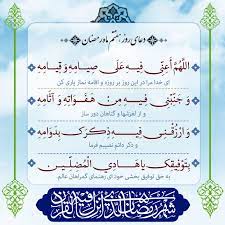 دعای روز هفتم ماه رمضان
اللّهُمَّ أَعِنِّی فِیهِ عَلَى صِیامِهِ وَ قِیامِهِ
ای خدا مرا در این روز بر روزه و اقامه نماز یاری کن
وَ جَنِّبْنِی فِیهِ مِنْ هَفَوَاتِهِ وَ آثَامِهِ
و از لغزشها و گناهان دور ساز
وَ ارْزُقْنِی فِیهِ ذِکْرَکَ بِدَوَامِهِ
و ذکر دائم نصیبم فرما
بِتَوْفِیقِکَ یَا هَادِیَ الْمُضِلِّینَ
به حق توفیق بخشی خود ای رهنمای گمراهان عالم.
شهر رمضان الذی انزل فیه القرآن